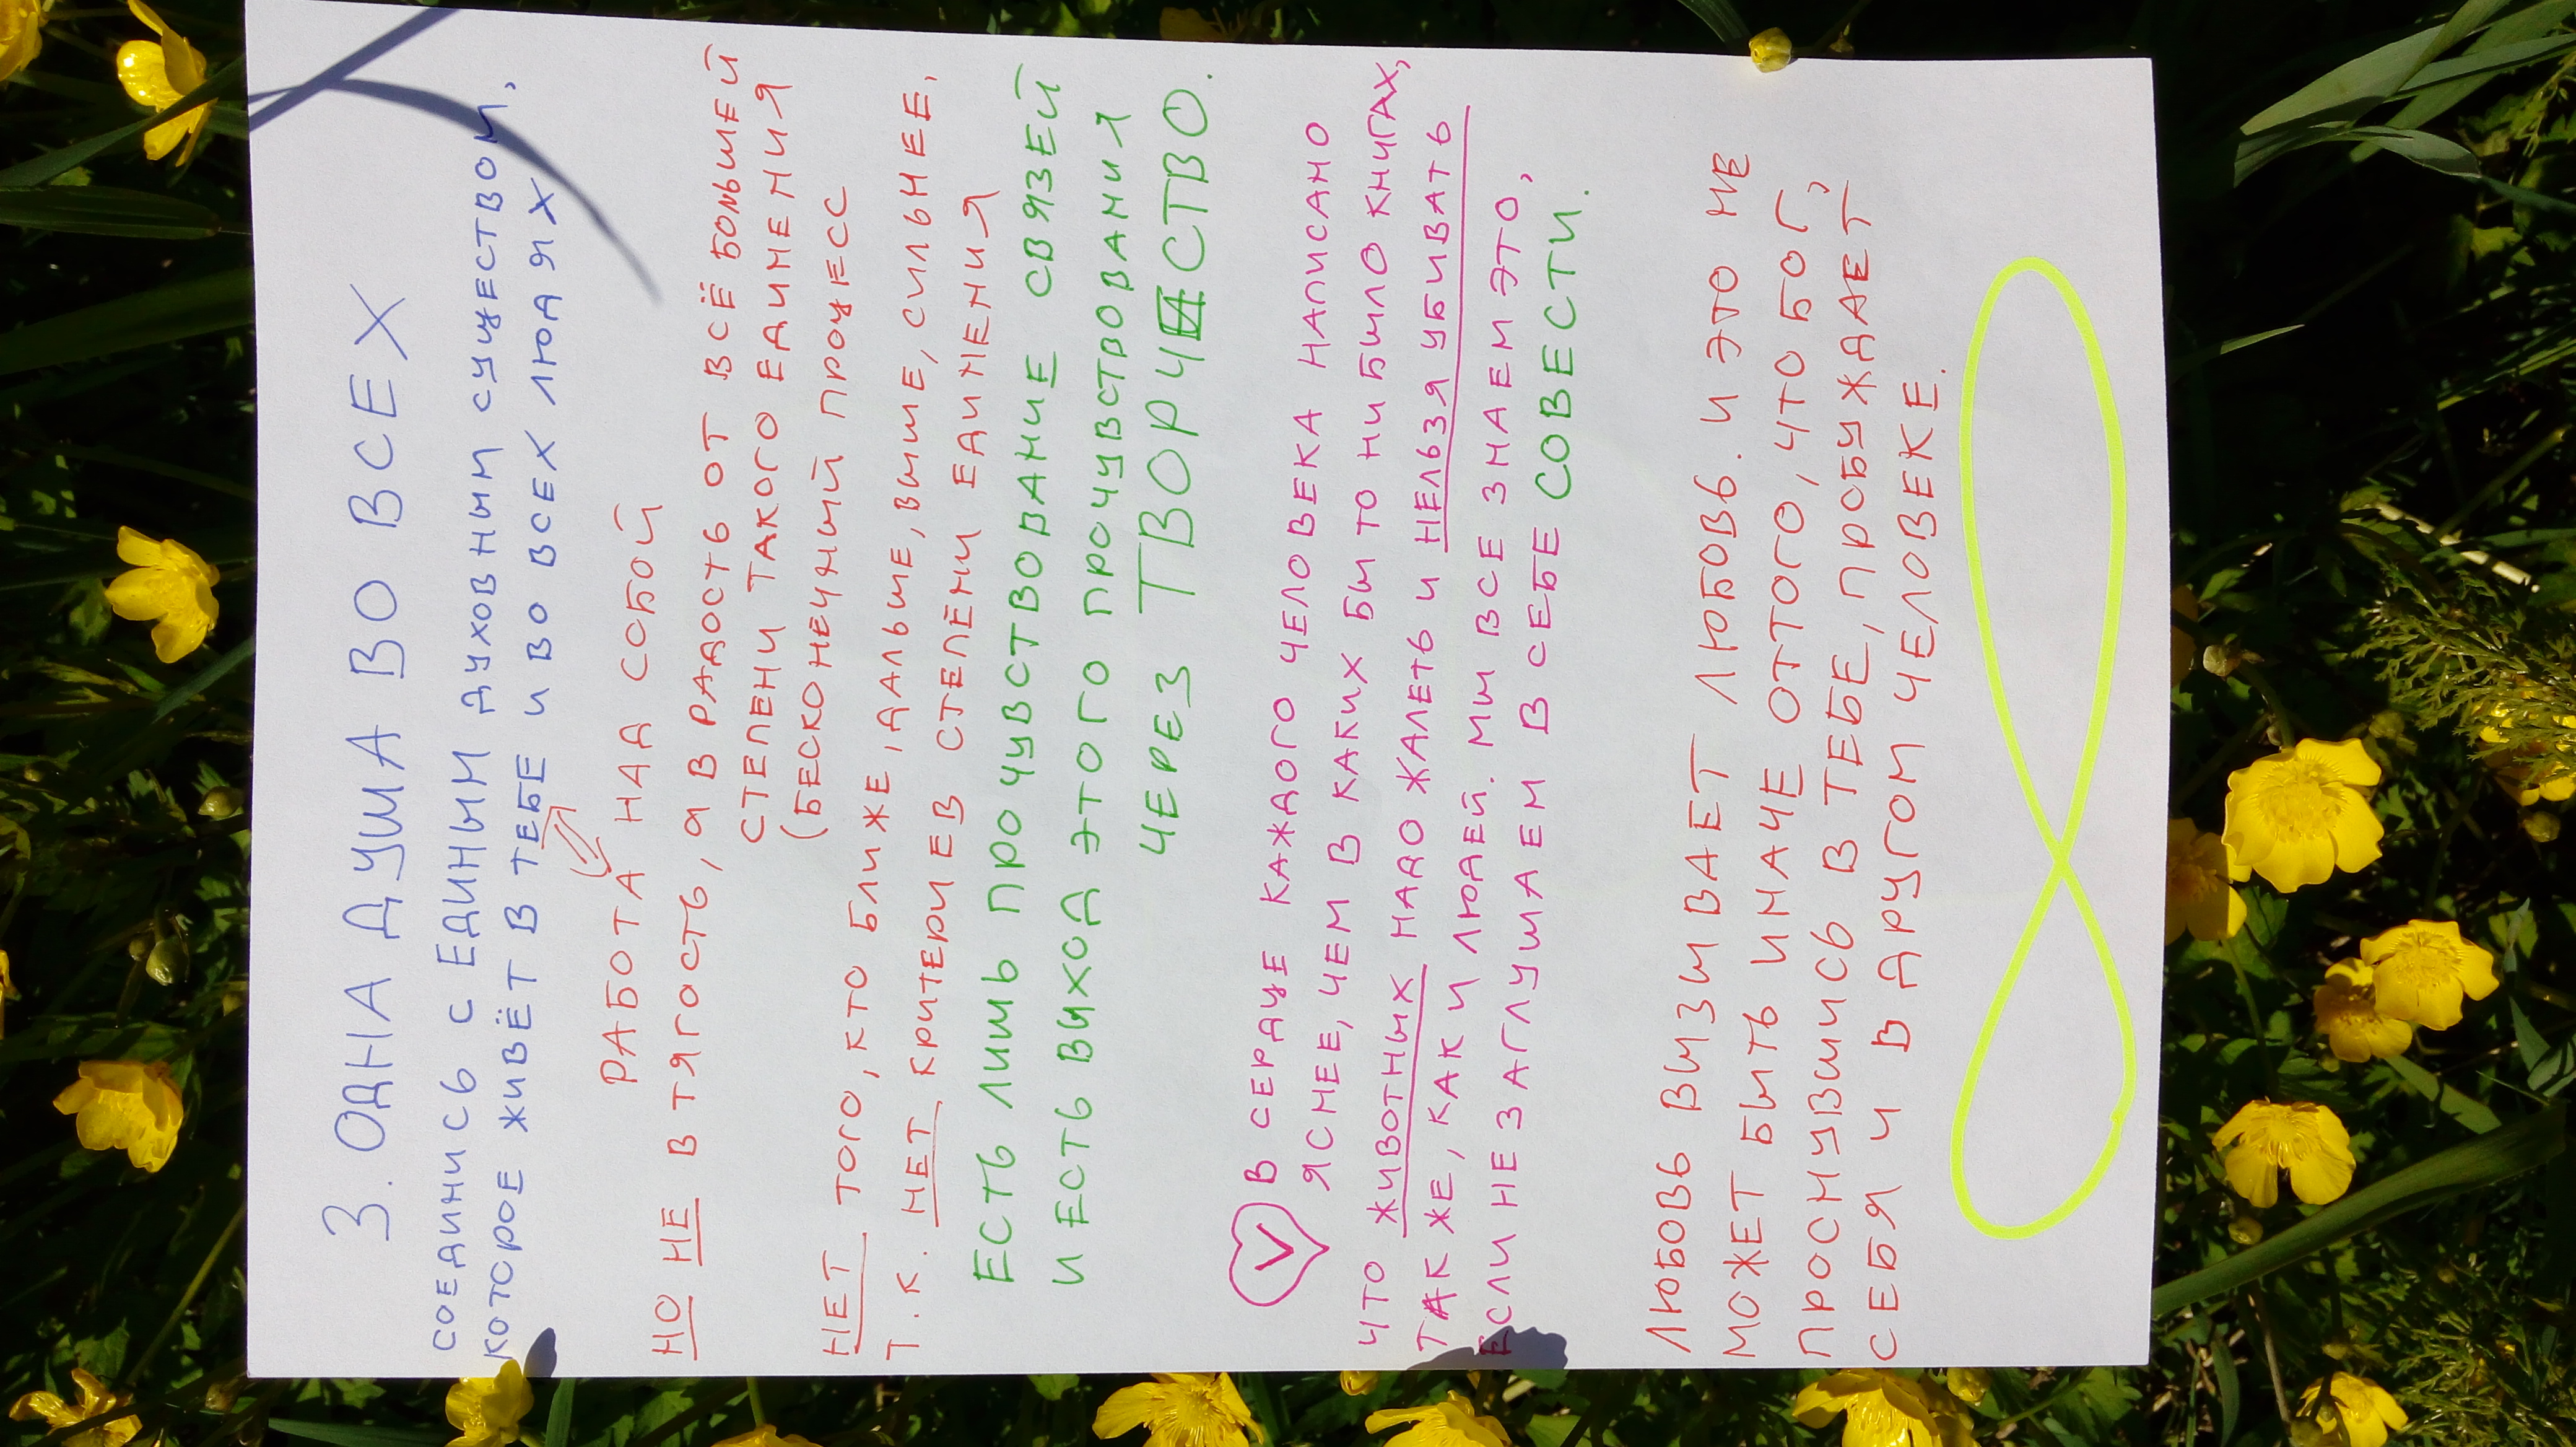 3. ОДНА ДУША ВО ВСЕХ
СОЕДИНИСЬ С ЕДИНЫМ ДУХОВНЫМ СУЩЕСТВОМ,
КОТОРОЕ ЖИВЁТ В ТЕБЕ И ВО ВСЕХ ЛЮДЯХ
РАБОТА НАД СОБОЙ
НО НЕ В ТЯГОСТЬ, А В РАДОСТЬ ОТ ВСЁ БОЛЬШЕЙ
СТЕПЕНИ ТАКОГО ЕДИНЕНИЯ
(БЕСКОНЕЧНЫЙ ПРОЦЕСС
НЕТ ТОГО, КТО БЛИЖЕ, ДАЛЬШЕ, ВЫШЕ, СИЛЬНЕЕ,
Т.К. НЕТ КРИТЕРИЕВ СТЕПЕНИ ЕДИНЕНИЯ
ЕСТЬ ЛИШЬ ПРОЧУВСТВОВАНИЕ СВЯЗЕЙ
И ЕСТЬ ВЫХОД ЭТОГО ПРОЧУВСТВОВАНИЯ
ЧЕРЕЗ ТВОРЧЕСТВО.
V В СЕРДЦЕ КАЖДОГО ЧЕЛОВЕКА НАПИСАНО
ЯСНЕЕ, ЧЕМ В КАКИХ БЫ ТО НИ БЫЛО КНИГАХ,
ЧТО ЖИВОТНЫХ НАДО ЖАЛЕТЬ И НЕЛЬЗЯ УБИВАТЬ
ТАК ЖЕ, КАК И ЛЮДЕЙ. МЫ ВСЕ ЗНАЕМ ЭТО,
ЕСЛИ НЕ ЗАГЛУШАЕМ В СЕБЕ СОВЕСТИ.
ЛЮБОВЬ ВЫЗЫВАЕТ ЛЮБОВЬ. И ЭТО НЕ
МОЖЕТ БЫТЬ ИНАЧЕ ОТТОГО, ЧТО БОГ,
ПРОСНУВШИСЬ В ТЕБЕ, ПРОБУЖДАЕТ
СЕБЯ И В ДРУГОМ ЧЕЛОВЕКЕ.